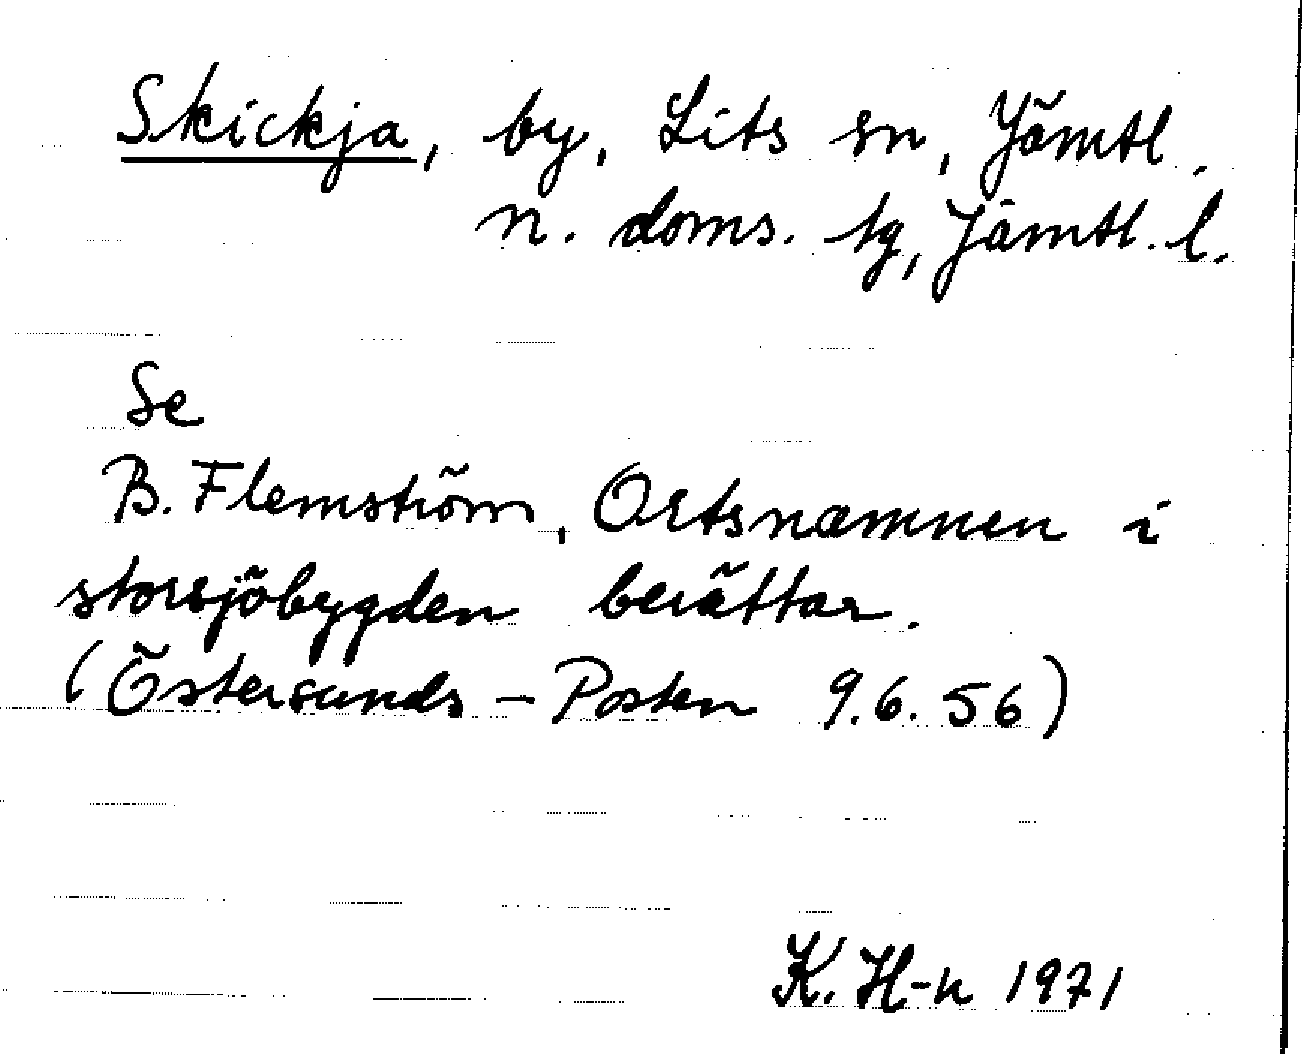 Skickja, by, Lits sn, Jämtl.
n. doms. tg, Jämtl. l.
Se
B. Flemström, Ortsnamnen i
storsjöbygden berättar.
(Östersunds-Posten 9.6.56)
K. H-n 1971